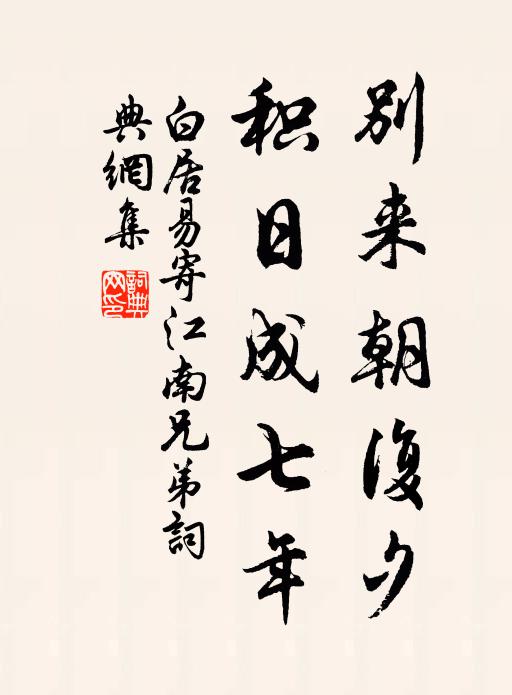 別来朝復夕
积日成七年
白居易寄江南兄弟詞
典網集
詞典網印